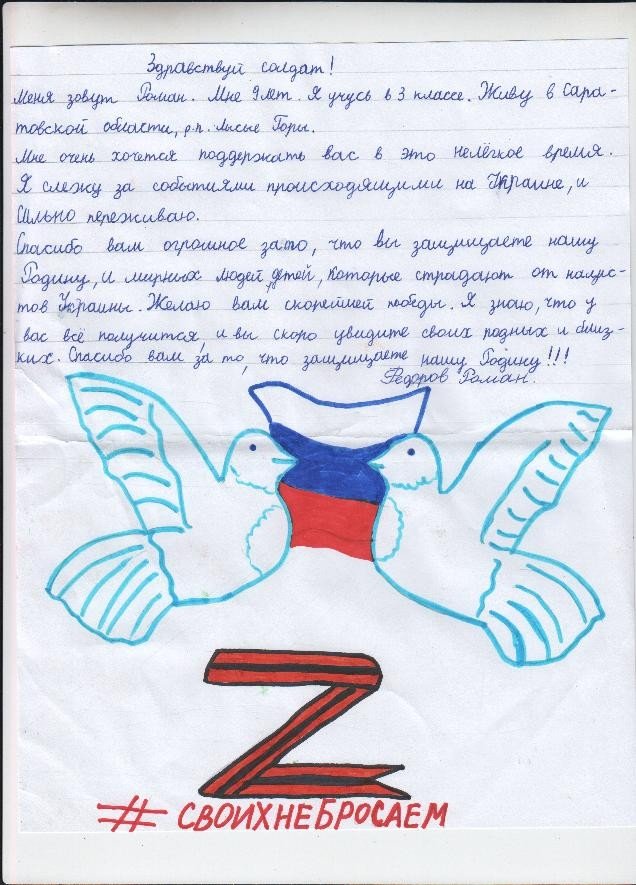 Здравствуй солдат!
Меня зовут Роман. Мне 9 лет. Я учусь в 3 классе. Живу в Сара-
товской области, р.п. Лысые Горы.
Мне очень хочется поддержать вас в это нелёгкое время.
Я слежу за событиями происходящими на Украине, и
сильно переживаю.
Спасибо вам огромное за то, что вы защищаете нашу
Родину, и мирных людей, детей, которые страдают от нацис-
тов Украины. Желаю вам скорейшей победы. Я знаю, что у
вас всё получится, и вы скоро увидите своих родных и близ-
ких. Спасибо вам за то, что защищаете нашу Родину!!!
Федоров Роман.
Z
#СВОИХНЕБРОСАЕМ